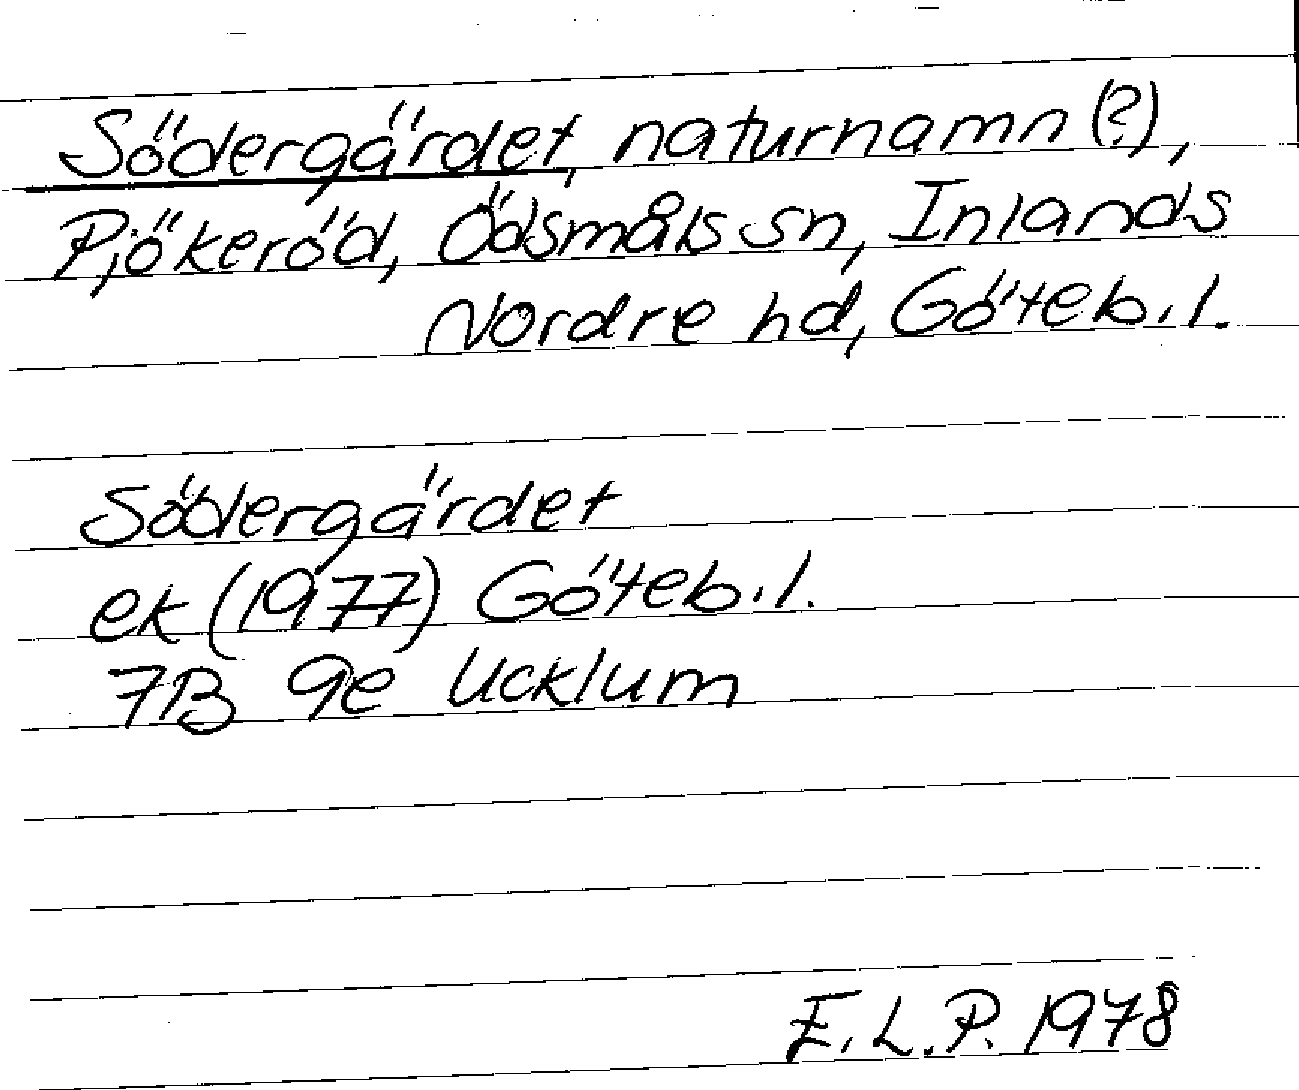 Södergärdet, naturnamn (?),
Pjökeröd, Ödsmåls sn, Inlands
Nordre hd, Göteb.l.
Södergärdet
ek (1977) Göteb.l.
7B 9e Ucklum
E.L.P. 1978